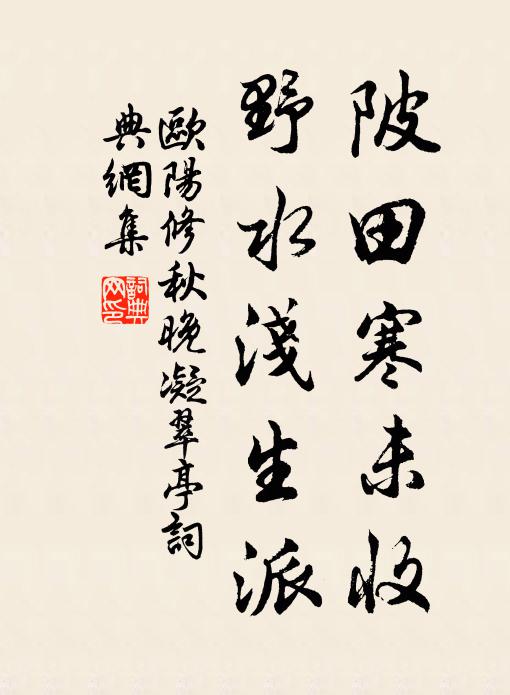 陂田寒未收
野水淺生派
歐陽修秋晚凝翠亭詞
典網集
詞典
网印